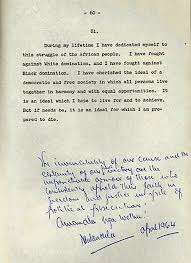 - 60 -
51.
During my lifetime I have dedicated myself to
this struggle of the African people. I have fought
against White domination, and I have fought against
Black domination. I have cherished the ideal of a
democratic and free society in which all persons live
together in harmony and with equal opportunities. It
is an ideal which I hope to live for and to achieve.
But if needs be, it is an ideal for which I am pre-
pared to die.
The invincibility of our cause and the
certainty of our victory are the
impenetrable armour of those who
consistently uphold their faith in
freedom and justice in spite of
political persecution.
April 1964